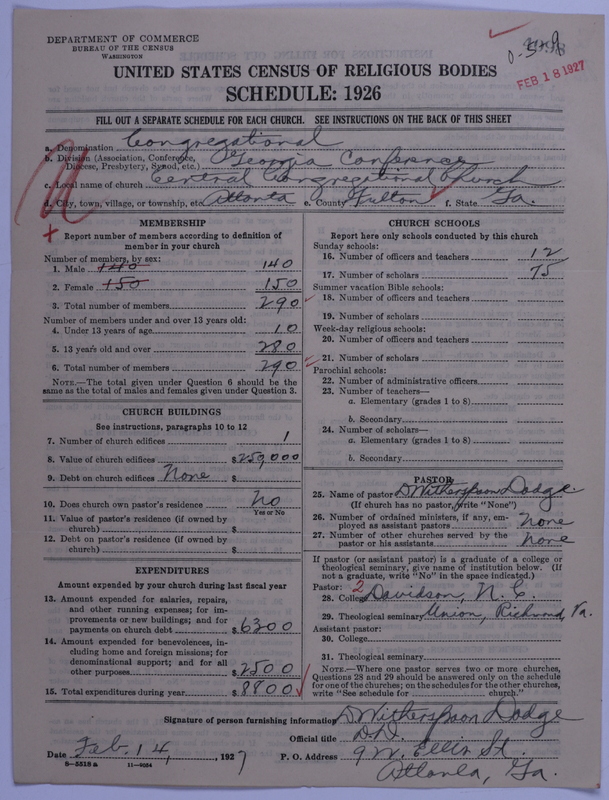 DEPARTMENT OF COMMERCE
BUREAU OF THE CENSUS
WASHINGTON
FEB 18 1927
UNITED STATES CENSUS OF RELIGIOUS BODIES
SCHEDULE: 1926
FILL OUT A SEPARATE SCHEDULE FOR EACH CHURCH. SEE INSTRUCTIONS ON THE BACK OF THIS SHEET
a. Denomination Congregational
b. Division (Association, Conference, Diocese, Presbytery, Synod, etc.) Georgia Conference
c. Local name of church Central Congregational Church
d. City, town, village, or township, etc. Atlanta e. County Fulton f. State Ga.
MEMBERSHIP
Report number of members according to definition of
member in your church
Number of members, by sex:
1. Male 140 140
2. Female 150 150
3. Total number of members 290
Number of members under and over 13 years old:
4. Under 13 years of age 10
5. 13 years old and over 280
6. Total number of members 290
NOTE.—The total given under Question 6 should be
same as the total of males and females given under Question 3.
CHURCH BUILDINGS
See instructions, paragraphs 10 to 12
7. Number of church edifices 1
8. Value of church edifices $250,000
9. Debt on church edifices None $
10. Does church own pastor's residence No
Yes or No
11. Value of pastor's residence (if owned by
church) $
12. Debt on pastor's residence (if owned by
church) $
EXPENDITURES
Amount expended by your church during last fiscal year
13. Amount expended for salaries, repairs,
and other running expenses; for im-
provements or new buildings; and for
payments on church debt $6300
14. Amount expended for benevolences, in-
cluding home and foreign missions; for
denominational support; and for all
other purposes $2500
15. Total expenditures during year $8800
CHURCH SCHOOLS
Report here only schools conducted by this church
Sunday schools:
16. Number of officers and teachers 12
17. Number of scholars 75
Summer vacation Bible schools:
18. Number of officers and teachers
19. Number of scholars
Week-day religious schools:
20. Number of officers and teachers
21. Number of scholars
Parochial schools:
22. Number of administrative officers
23. Number of teachers—
a. Elementary (grades 1 to 8)
b. Secondary
24. Number of scholars—
a. Elementary (grades 1 to 8)
b. Secondary
PASTOR
25. Name of pastor D Witherspoon Dodge.
(If church has no pastor, write "None")
26. Number of ordained ministers, if any, em-
ployed as assistant pastors None
27. Number of other churches served by the
pastor or his assistants None
If pastor (or assistant pastor) is a graduate of a college or
theological seminary, give name of institution below. (If
not a graduate, write "No" in the space indicated.)
Pastor: 2
28. College Davidson, N.C.
29. Theological seminary Union, Richmond, Va.
Assistant pastor:
30. College
31. Theological seminary
NOTE.—Where one pastor serves two or more churches,
Questions 28 and 29 should be answered only on the schedule
for one of the churches; on the schedules for the other churches,
write "See schedule for church."
Signature of person furnishing information D Witherspoon Dodge
Official title D.D.
Date Feb. 14, 1927 P. O. Address 9 W. Ellis St.
Atlanta, Ga.
8-5518a 11-9054